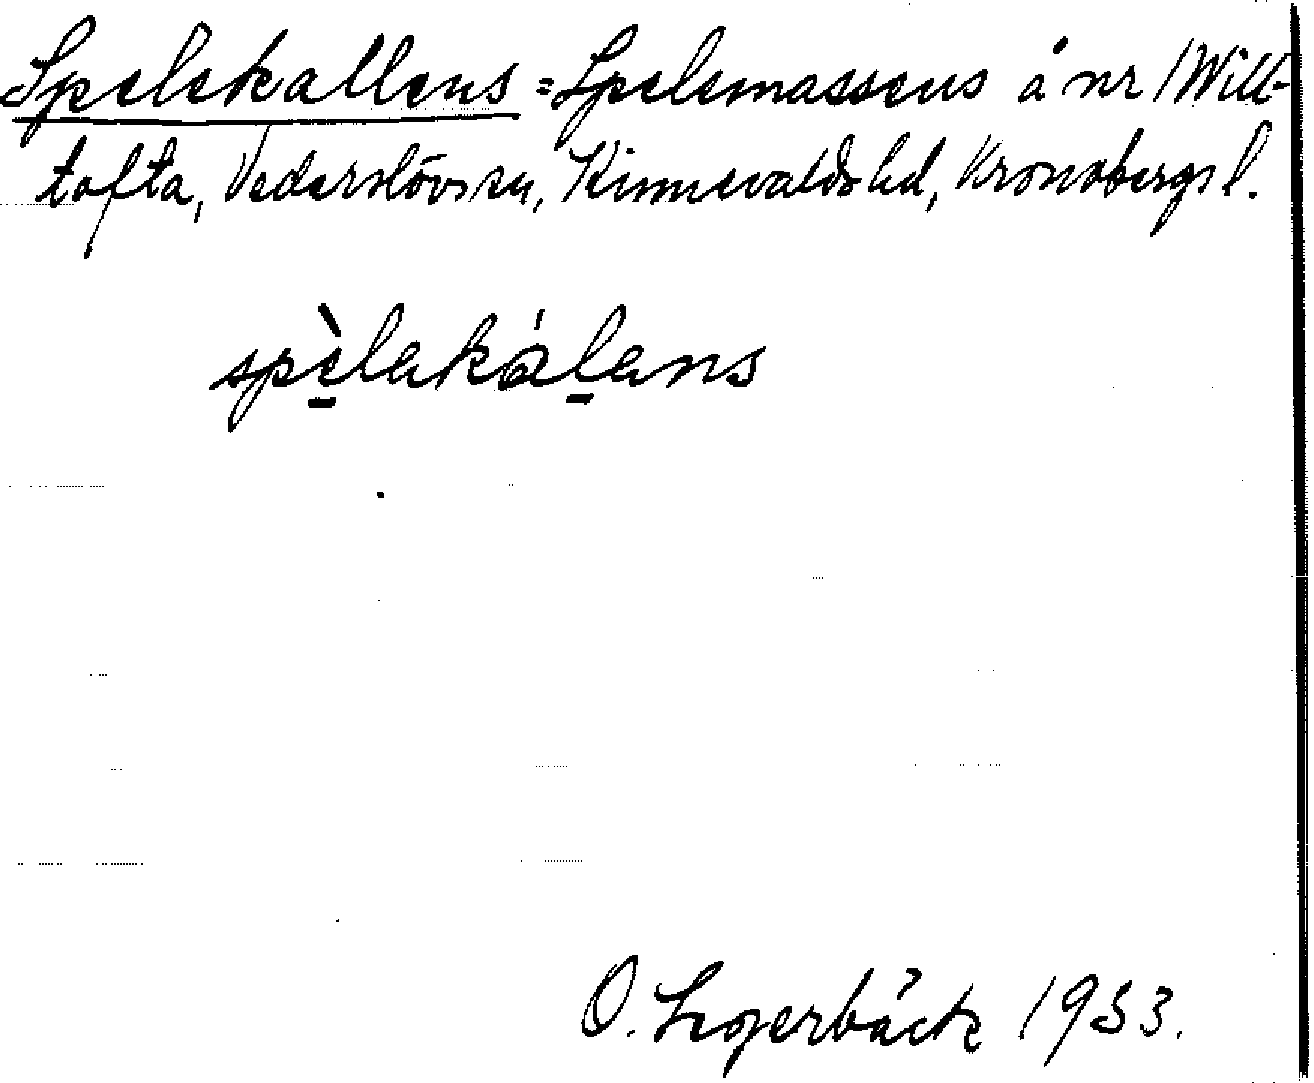 Spelekallens = Spelemassens å nr 1 Will-
tofta, Vederslövs sn, Kinnevalds hd, Kronobergs l.
spèlekálens
O. Segerbäck 1933.